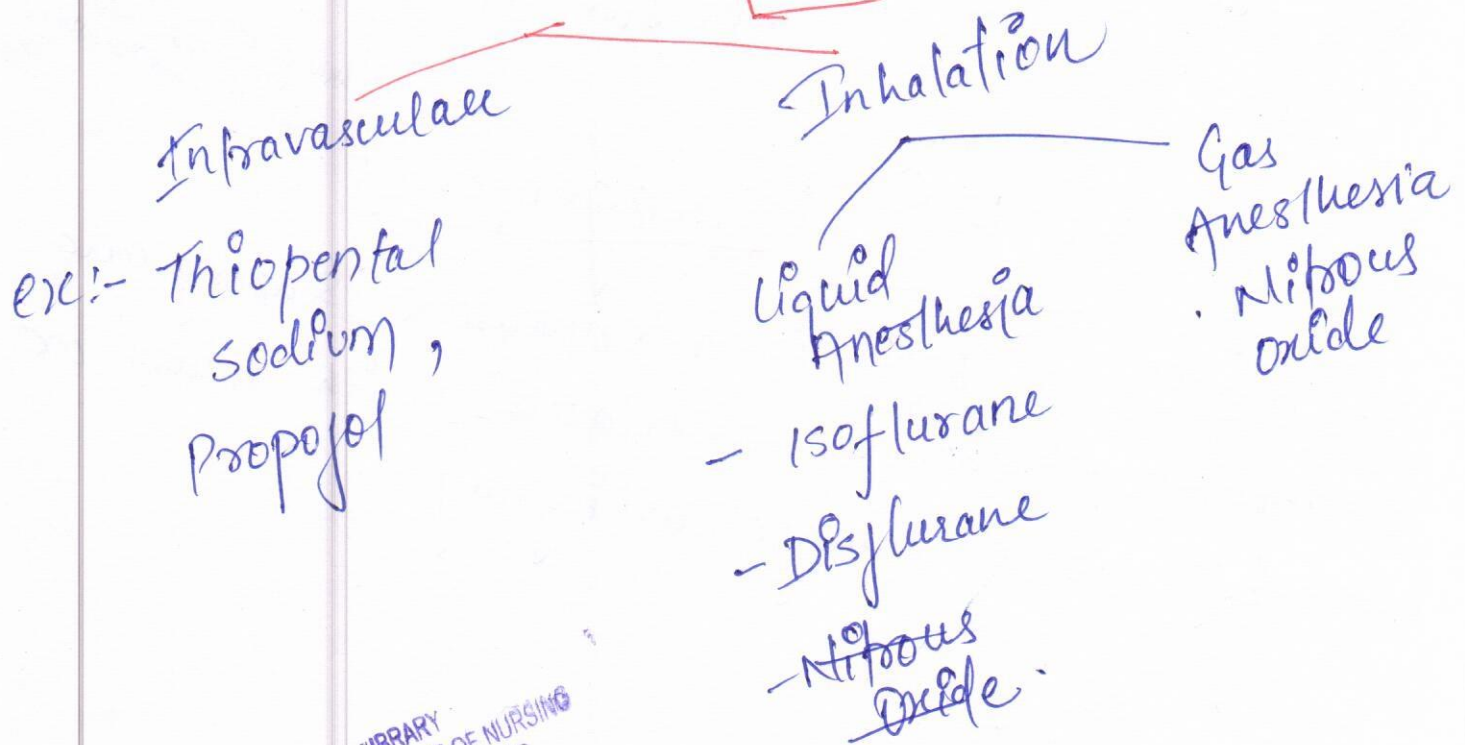 Intravascular
ex:- Thiopental
sodium,
Propofol
Inhalation
Liquid
Anesthesia
- Isoflurane
- Disflurane
- Nitrous
Oxide.
Gas
Anesthesia
. Nitrous
oxide
LIBRARY
OF NURSING